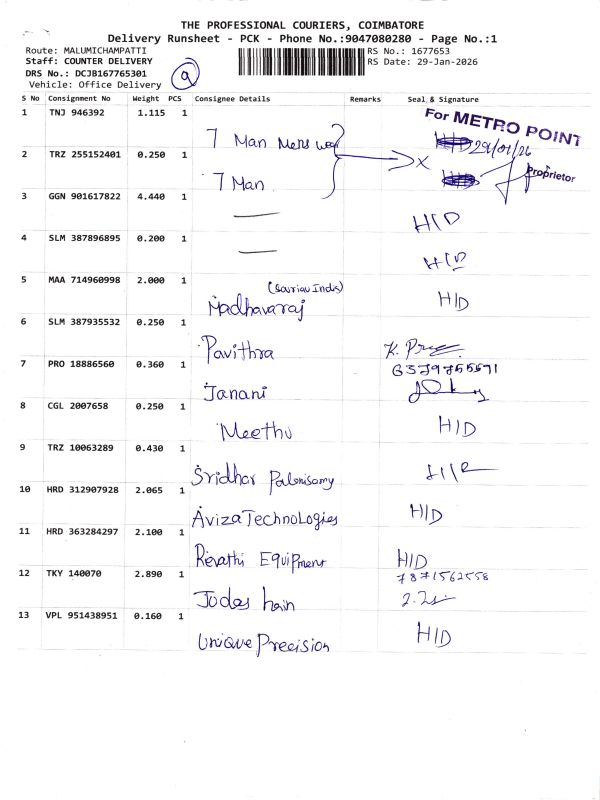 THE PROFESSIONAL COURIERS, COIMBATORE
Delivery Runsheet - PCK - Phone No.:9047080280 - Page No.:1
Route: MALUMICHAMPATTI
RS No.: 1677653
Staff: COUNTER DELIVERY
RS Date: 29-Jan-2026
DRS No.: DCJB167765301
Vehicle: Office Delivery
9
S No Consignment No Weight PCS Consignee Details Remarks Seal & Signature
1 TNJ 946392 1.115 1 7 Man Mens
For METRO POINT
29/01/26
2 TRZ 255152401 0.250 1 7 Man X
Proprietor
3 GGN 901617822 4.440 1 H/D
4 SLM 387896895 0.200 1 H/D
5 MAA 714960998 2.000 1 Madhavaraj H/D
6 SLM 387935532 0.250 1 Pavithra
7 PRO 18886560 0.360 1 Janani
8 CGL 2007658 0.250 1 Meethu H/D
9 TRZ 10063289 0.430 1 Sridhar Palanisamy
10 HRD 312907928 2.065 1 Aviza Technologies H/D
11 HRD 363284297 2.100 1 Revathi Equipment H/D
12 TKY 140070 2.890 1 Judas hain 7871562558
13 VPL 951438951 0.160 1 Unique Precision H/D